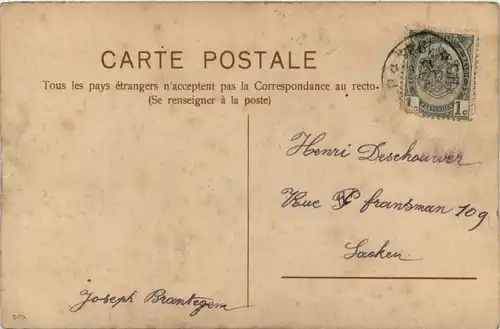 CARTE POSTALE
Tous les pays étrangers n'acceptent pas la Correspondance au recto.
(Se renseigner à la poste)
1c 1c
Henri Deschouwer
Rue fransman 109
Laeken
Joseph Brantegem